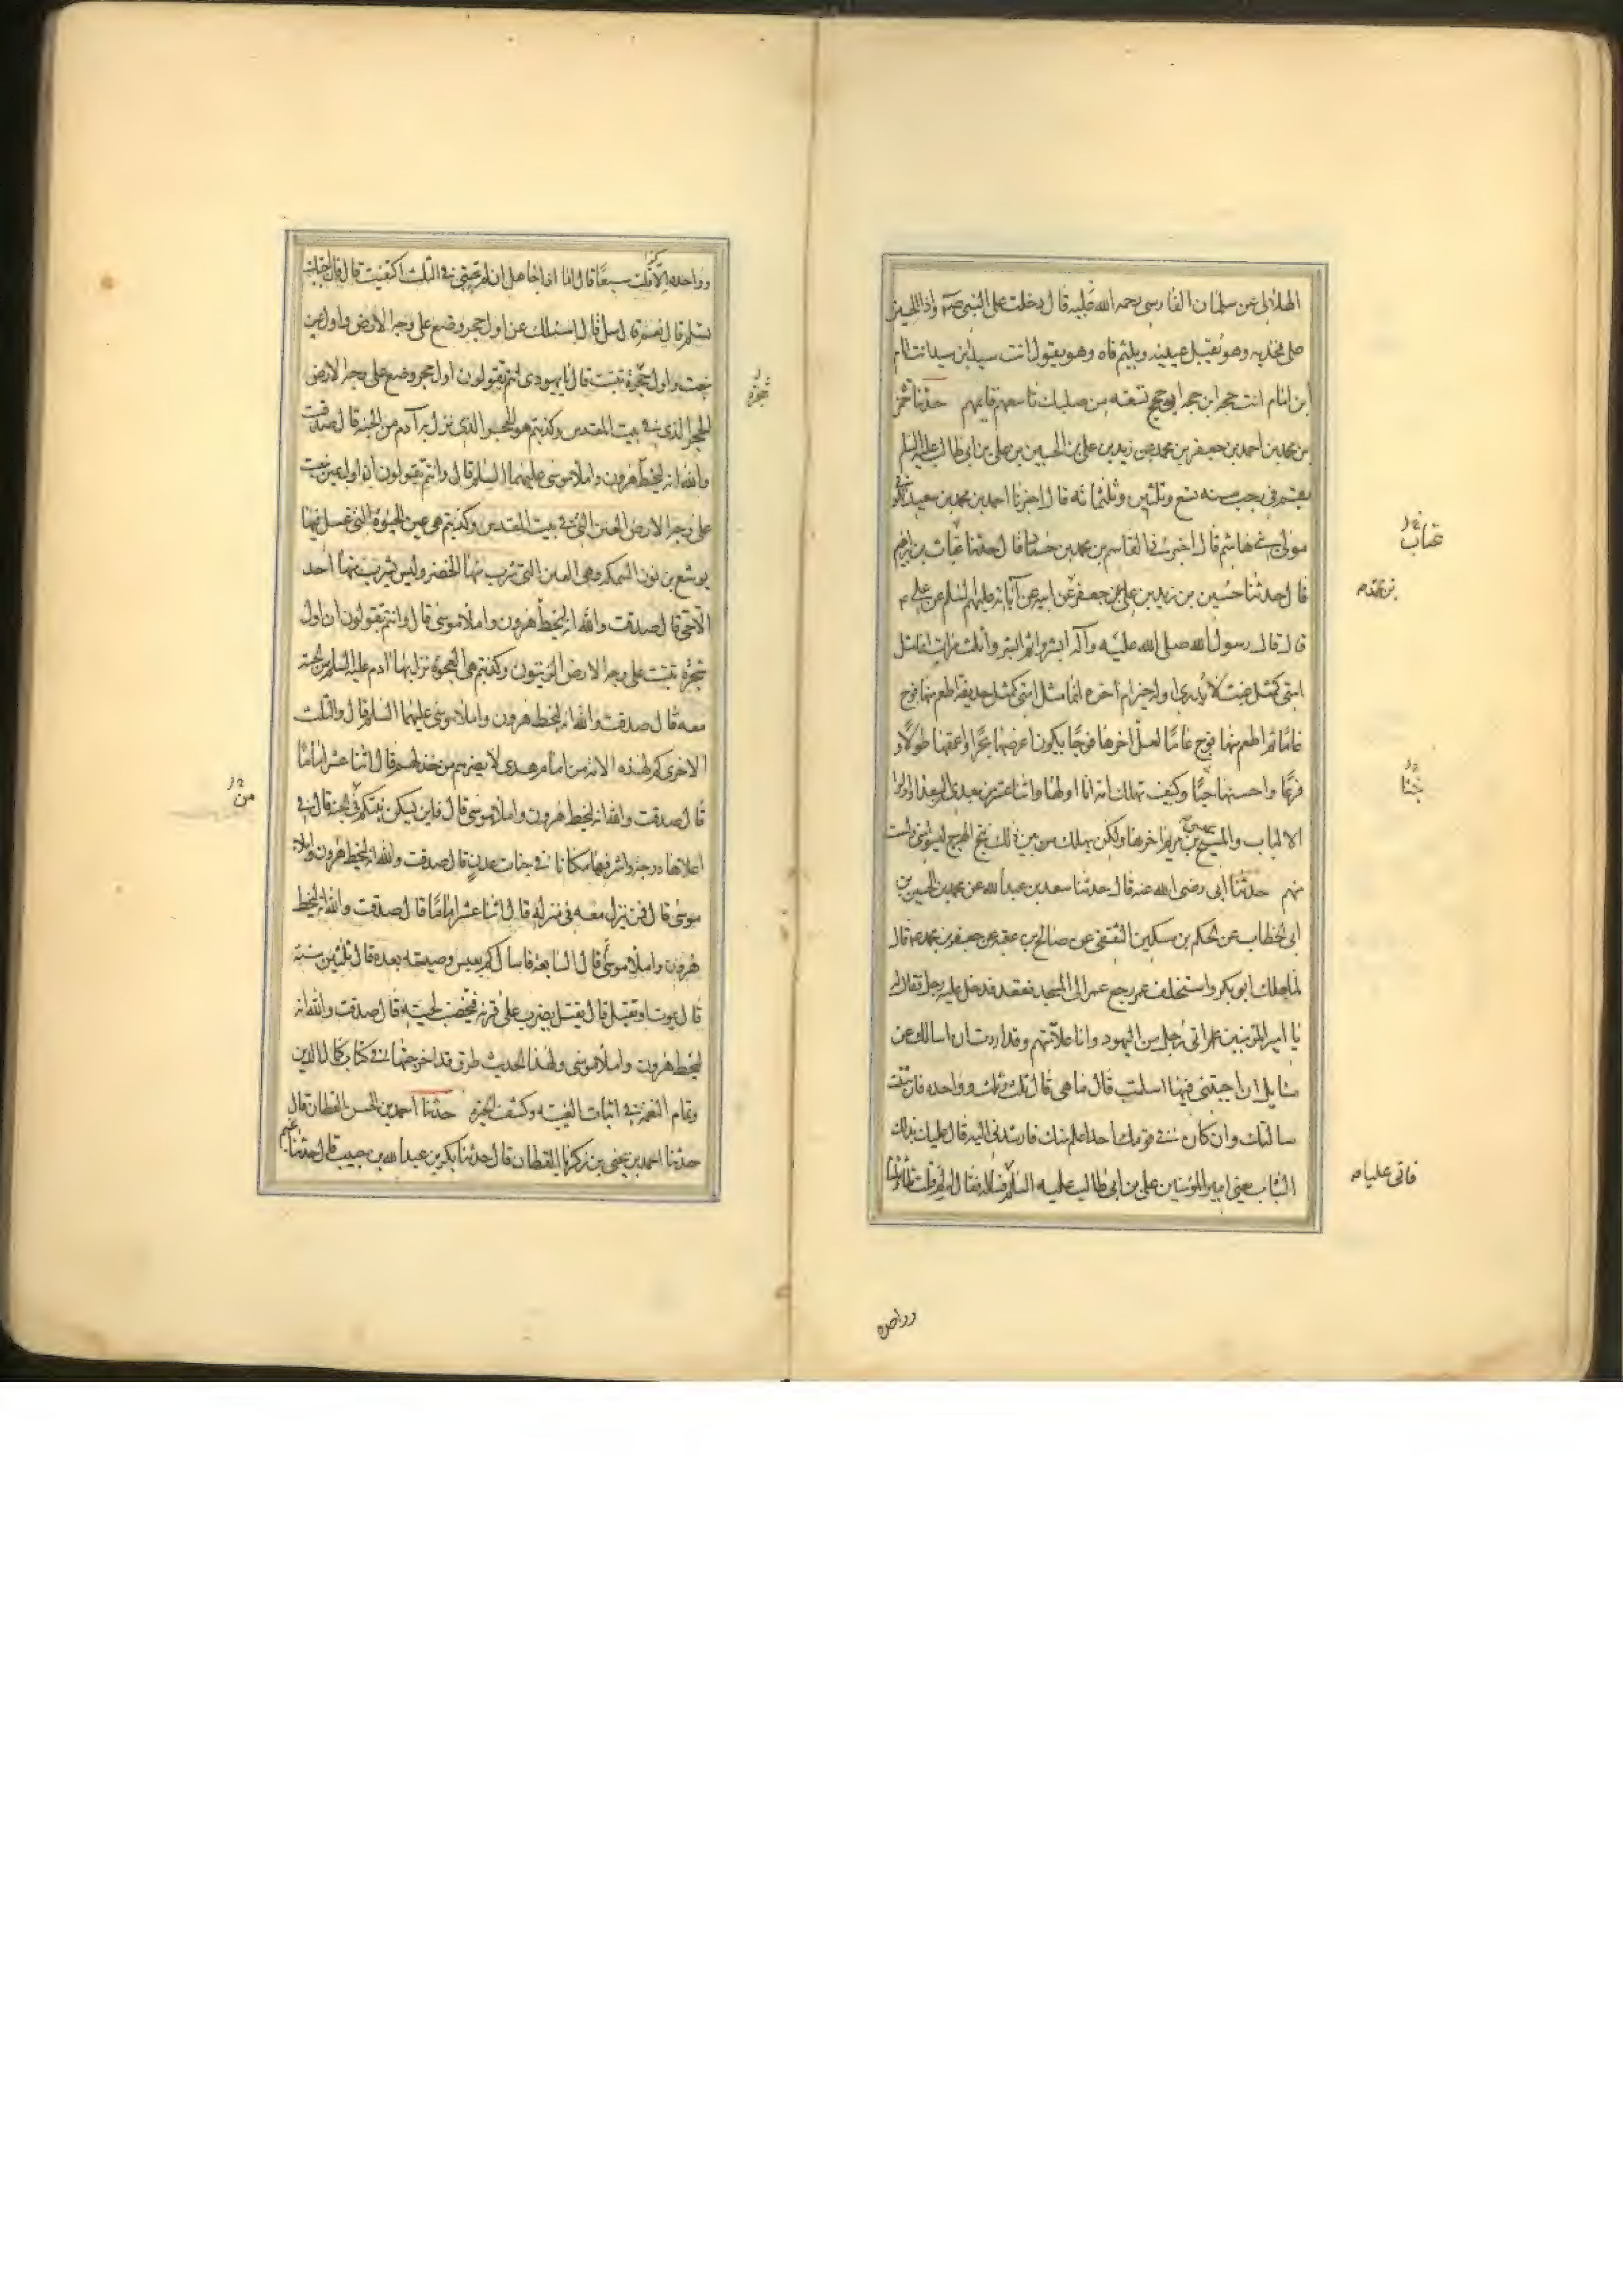 الهلالى عن سلمان الفارسى رحمه الله عليه قال دخلت على النبى صم واذا الحسين
على فخذيه وهو يقبل عينيه ويلثم فاه وهو يقول انت سيد ابن سيد انت امام
ابن امام انت حجه ابن حجه ابو حجج تسعه من صلبك تاسعهم قايمهم حدثنا حمزه
بن محمد بن احمد بن جعفر بن محمد بن زيد بن على بن الحسين بن على بن ابى طالب عليه السلم
بقم فى رجب سنه تسع وثلثين وثلثمائه قال اخبرنا احمد بن محمد بن سعيد الكوفى
مولى بنى هاشم قال اخبرنى القاسم بن محمد بن حماد قال حدثنا غياث بن ابرهيم
قال حدثنا حسين بن زيد بن على عن جعفر عن ابيه عن آبائه عليهم السلم عن على ع
قال قال رسول الله صلى الله عليه وآله ابشروا ثم ابشروا ثلث مرات انما مثل
امتى كمثل غيث لا يدرى اوله خير ام آخره انما مثل امتى كمثل حديقه اطعم منها فوج
عاما ثم اطعم منها فوج عاما لعل اخرها فوجا يكون اعرضها بحرا واعمقها طولا و
فرعا واحسنها جنا وكيف تهلك امه انا اولها واثنا عشر من بعدى السعدا واولوا
الالباب والمسيح عيسى بن مريم اخرها ولكن يهلك من بين ذلك نتج الهرج ليسوا منى ولست
منهم حدثنا ابى رضى الله عنه قال حدثنا سعد بن عبد الله عن محمد بن الحسين بن
ابى الخطاب عن الحكم بن مسكين الثقفى عن صالح بن عقبه عن جعفر بن محمد ع قال
لما هلك ابو بكر واستخلف عمر رجع عمر الى المسجد فقعد فدخل عليه رجل فقال له
يا امير المومنين انى رجل من اليهود وانا علامتهم وقد اردت ان اسالك عن
مسايل ان اجبتنى فيها اسلمت قال ما هى قال ثلث وثلث وواحده فان شئت
سالتك وان كان فى قومك احد اعلم منك فارشدنى اليه قال عليك بذلك
الشاب يعنى امير المومنين على بن ابى طالب عليه السلم فساله فقال له لم قلت ثلثا وثلثا
غياث
بن محمد
جنا
فاتى عليا
وواحده
وواحده الا قلت سبعا قال انا اذا جاهل ان لم تجبنى فى الثلث اكتفيت قال فان اجبتك
تسلم قال نعم قال سل قال اسئلك عن اول حجر وضع على وجه الارض واول عين
نبعت واول شجرة نبتت قال يا يهودى انتم تقولون اول حجر وضع على وجه الارض
الحجر الذى فى بيت المقدس وكذبتم هو الحجر الذى نزل به آدم من الجنه قال صدقت
والله انه لبخط هرون واملا موسى عليهما السلم قال وانتم تقولون ان اول عين نبعت
على وجه الارض العين التى فى بيت المقدس وكذبتم هى عين الحيوة التى غسل فيها
يوشع بن نون السمكه وهى العين التى شرب منها الخضر وليس يشرب منها احد
الا حى قال صدقت والله انه لبخط هرون واملا موسى قال وانتم تقولون ان اول
شجرة نبتت على وجه الارض الزيتون وكذبتم هى العجوة نزل بها آدم عليه السلم من الجنه
معه قال صدقت والله انه لبخط هرون واملا موسى عليهما السلم قال والثلث
الاخرى كم لهذه الامه من امام هدى لا يضرهم من خذلهم قال اثنا عشر اماما
قال صدقت والله انه لبخط هرون واملا موسى قال فاين يسكن نبيكم فى الجنه قال فى
اعلاها درجه واشرفها مكانا فى جنات عدن قال صدقت والله انه لبخط هرون واملاء
موسى قال فمن ينزل معه فى منزله قال اثنا عشر اماما قال صدقت والله انه لبخط
هرون واملا موسى قال السابعه فاسالك كم يعيش وصيه بعده قال ثلثين سنة
قال يموت او يقتل قال يقتل يضرب على قرنه فتخضب لحيته قال صدقت والله انه
لبخط هرون واملا موسى ولهذا الحديث طرق قد اخرجتها فى كتاب كمال الدين
وتمام النعمه فى اثبات الغيبه وكشف الحيره حدثنا احمد بن الحسن القطان قال
حدثنا احمد بن يحيى بن زكريا القطان قال حدثنا بكر بن عبد الله بن حبيب قال حدثنا تميم
شجرة
من